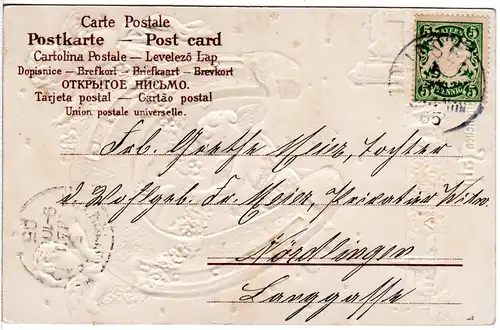 Carte Postale
Postkarte — Post card
Cartolina Postale — Levelező Lap
Dopisnice — Brefkort — Briefkaart — Brevkort
ОТКРЫТОЕ ПИСЬМО.
Tarjeta postal — Cartão postal
Union postale universelle.
5 BAYERN 5
5 PFENNIG 5
05
Frl. Grethe Meier, Tochter
d. Wohlgeb. Fr. Meier, Privatier Witw.
Nördlingen
Langgasse